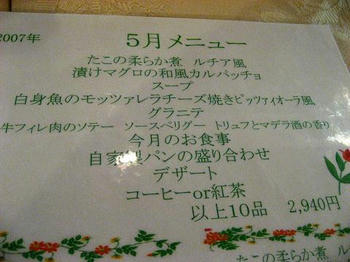 2007年
5月メニュー
たこの柔らか煮 ルチア風
漬けマグロの和風カルパッチョ
スープ
白身魚のモッツァレラチーズ焼きピッツァイオーラ風
グラニテ
牛フィレ肉のソテー ソースペリグー トリュフとマデラ酒の香り
今月のお食事
自家製パンの盛り合わせ
デザート
コーヒーor紅茶
以上10品 2,940円
たこの柔らか煮